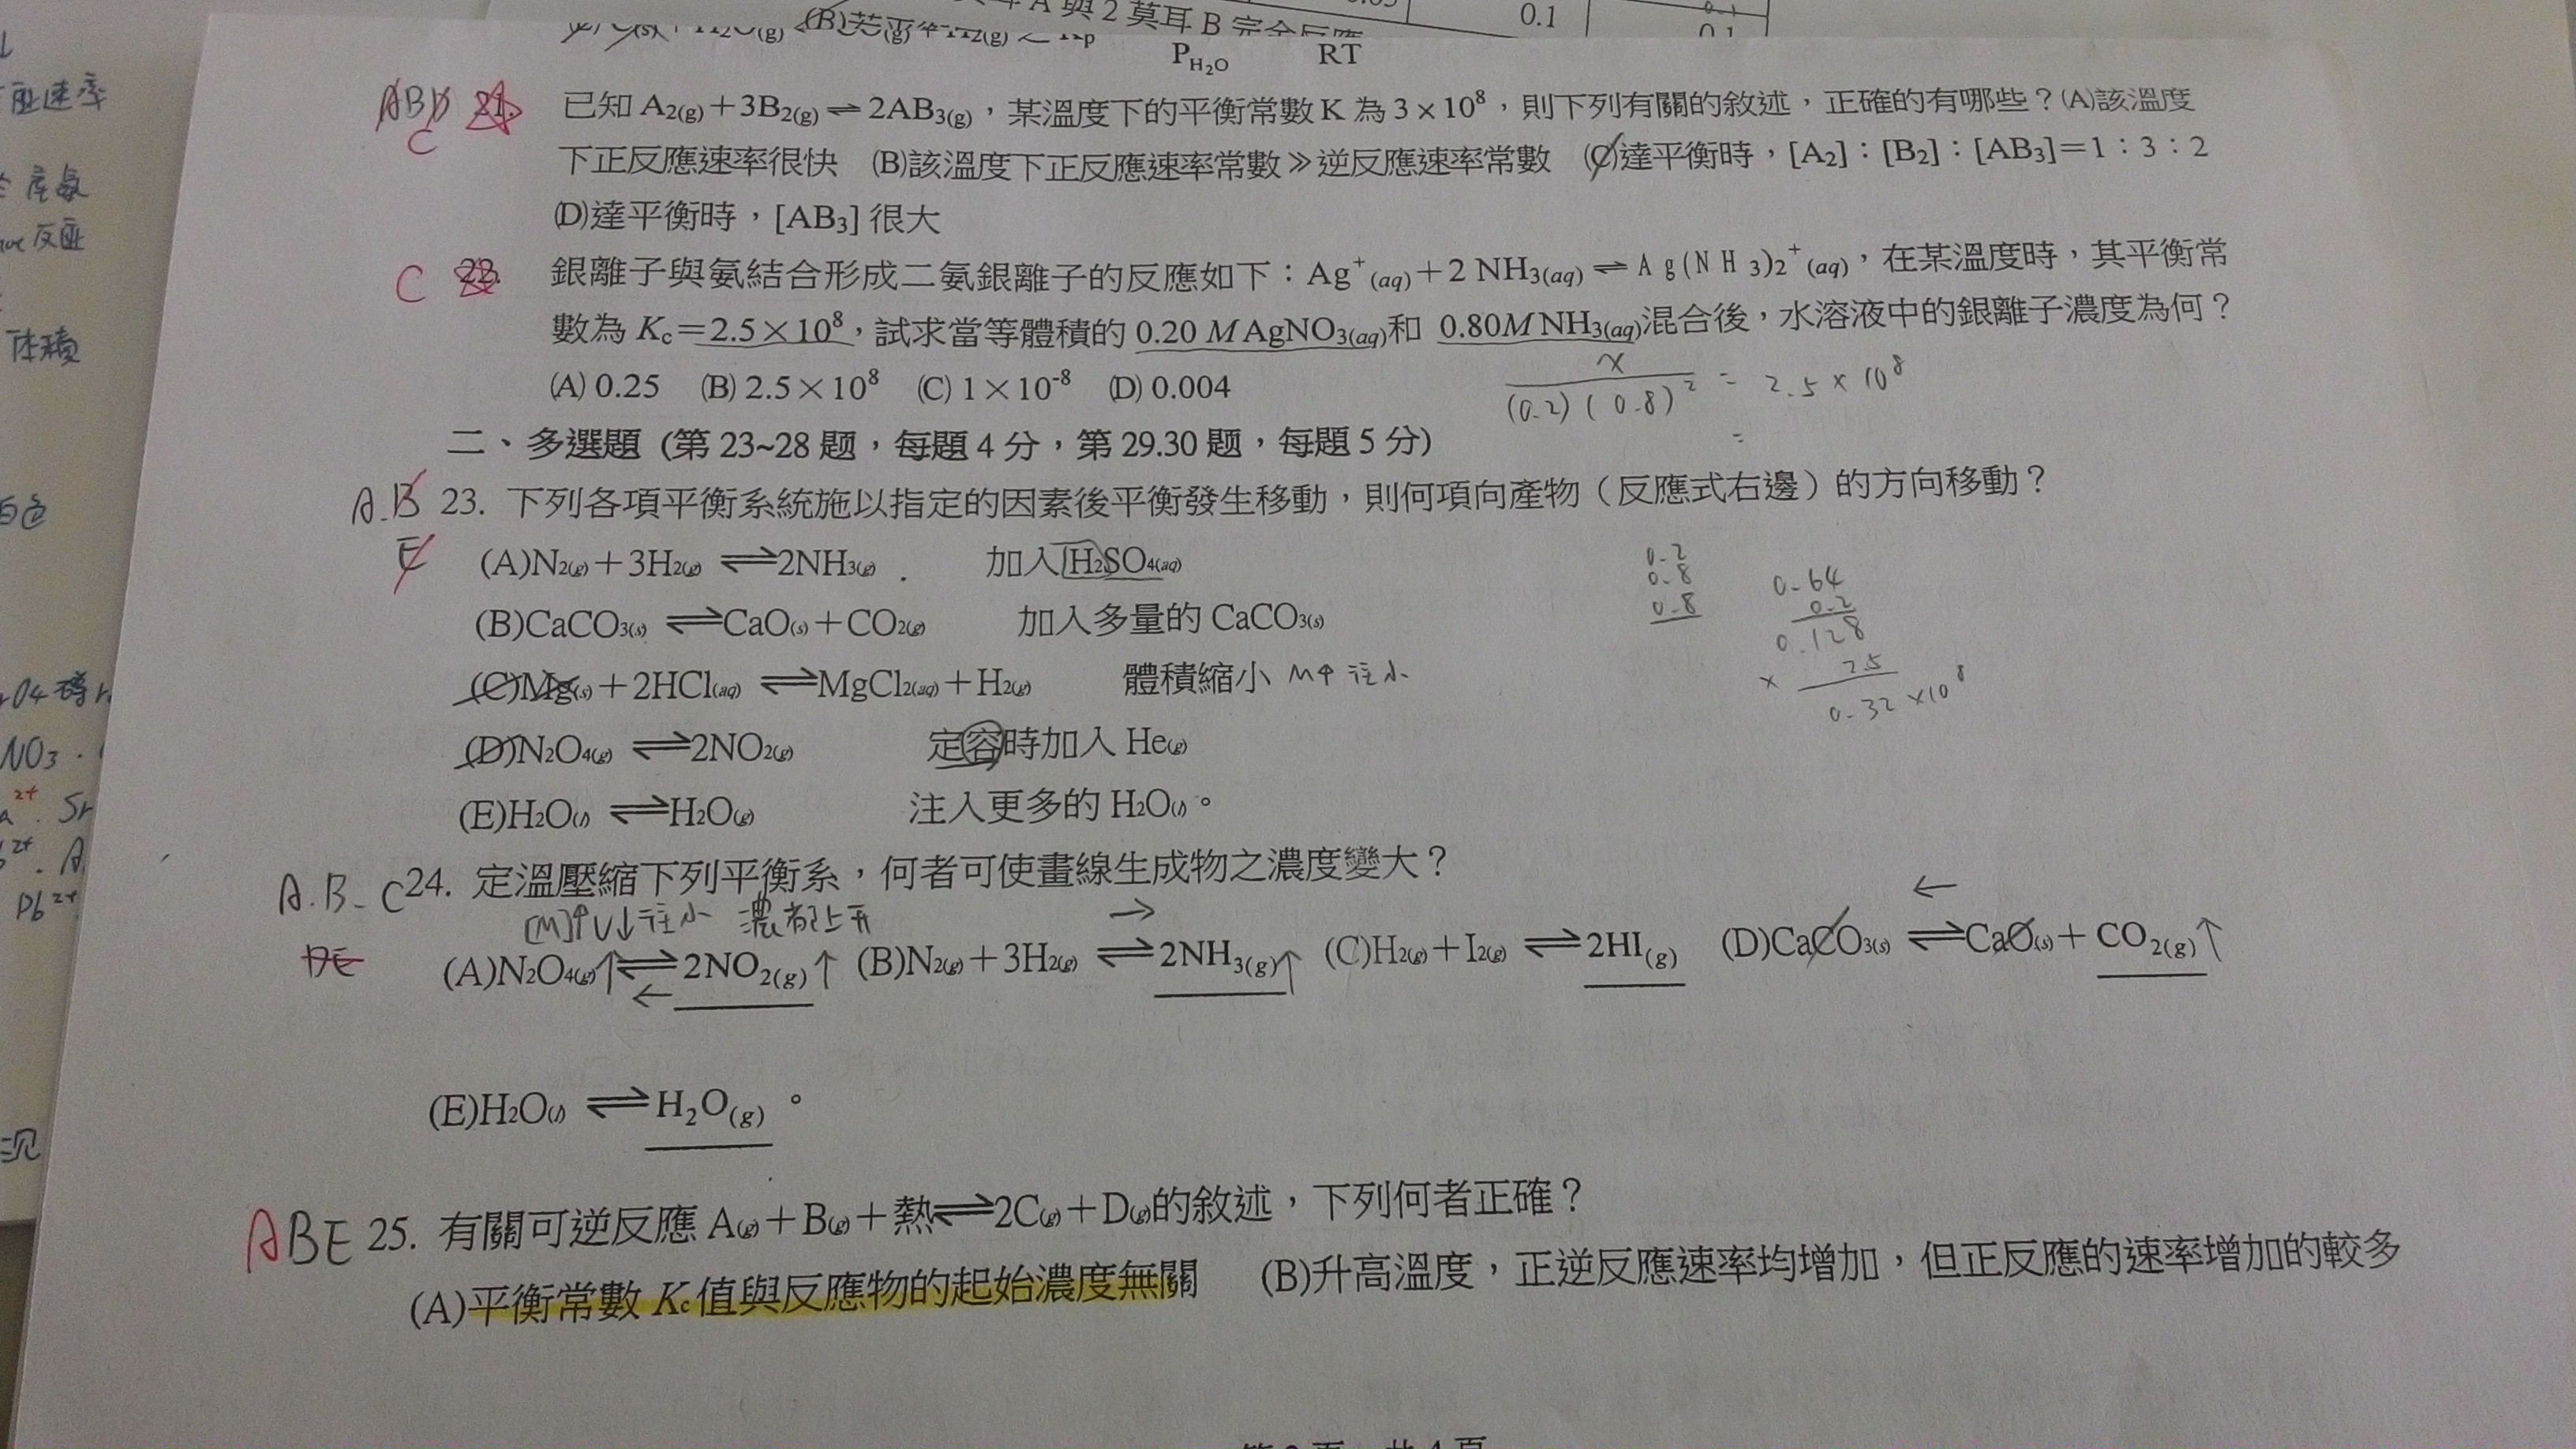 耳 A 與 2 莫耳 B 完全反應
0.1
P H₂O RT
ABD C 21. 已知 A₂(g)+3B₂(g)⇌2AB₃(g),某溫度下的平衡常數 K 為 3×10⁸,則下列有關的敘述,正確的有哪些?(A)該溫度
下正反應速率很快 (B)該溫度下正反應速率常數≫逆反應速率常數 (C)達平衡時,[A₂]:[B₂]:[AB₃]=1:3:2
(D)達平衡時,[AB₃] 很大
C 22. 銀離子與氨結合形成二氨銀離子的反應如下:Ag⁺(aq)+2 NH₃(aq)⇌Ag(NH₃)₂⁺(aq),在某溫度時,其平衡常
數為 Kc=2.5×10⁸,試求當等體積的 0.20 M AgNO₃(aq)和 0.80M NH₃(aq)混合後,水溶液中的銀離子濃度為何?
(A) 0.25 (B) 2.5×10⁸ (C) 1×10⁻⁸ (D) 0.004
x
(0.2)(0.8)² = 2.5×10⁸
=
二、多選題 (第 23~28 題,每題 4 分,第 29.30 題,每題 5 分)
A.B E 23. 下列各項平衡系統施以指定的因素後平衡發生移動,則何項向產物(反應式右邊)的方向移動?
(A)N₂(g)+3H₂(g)⇌2NH₃(g) 加入 H₂SO₄(aq)
(B)CaCO₃(s)⇌CaO(s)+CO₂(g) 加入多量的 CaCO₃(s)
(C)Mg(s)+2HCl(aq)⇌MgCl₂(aq)+H₂(g) 體積縮小 M↑ 往小
(D)N₂O₄(g)⇌2NO₂(g) 定容時加入 He(g)
(E)H₂O(l)⇌H₂O(g) 注入更多的 H₂O(l)。
0.2
0.8
0.8
0.64
0.2
0.128
× 2.5
0.32×10⁸
A.B.C DE 24. 定溫壓縮下列平衡系,何者可使畫線生成物之濃度變大?
[M]↑V↓往小 濃都上升 → ←
(A)N₂O₄(g)↑⇌2NO₂(g)↑ (B)N₂(g)+3H₂(g)⇌2NH₃(g)↑ (C)H₂(g)+I₂(g)⇌2HI(g) (D)CaCO₃(s)⇌CaO(s)+CO₂(g)↑
←
(E)H₂O(l)⇌H₂O(g)。
ABE 25. 有關可逆反應 A(g)+B(g)+熱⇌2C(g)+D(g)的敘述,下列何者正確?
(A)平衡常數 Kc 值與反應物的起始濃度無關 (B)升高溫度,正逆反應速率均增加,但正反應的速率增加的較多
匝速率
產氨
反匝
体積
白色
NO₃
2+ Sr
2+
Pb²⁺
沉